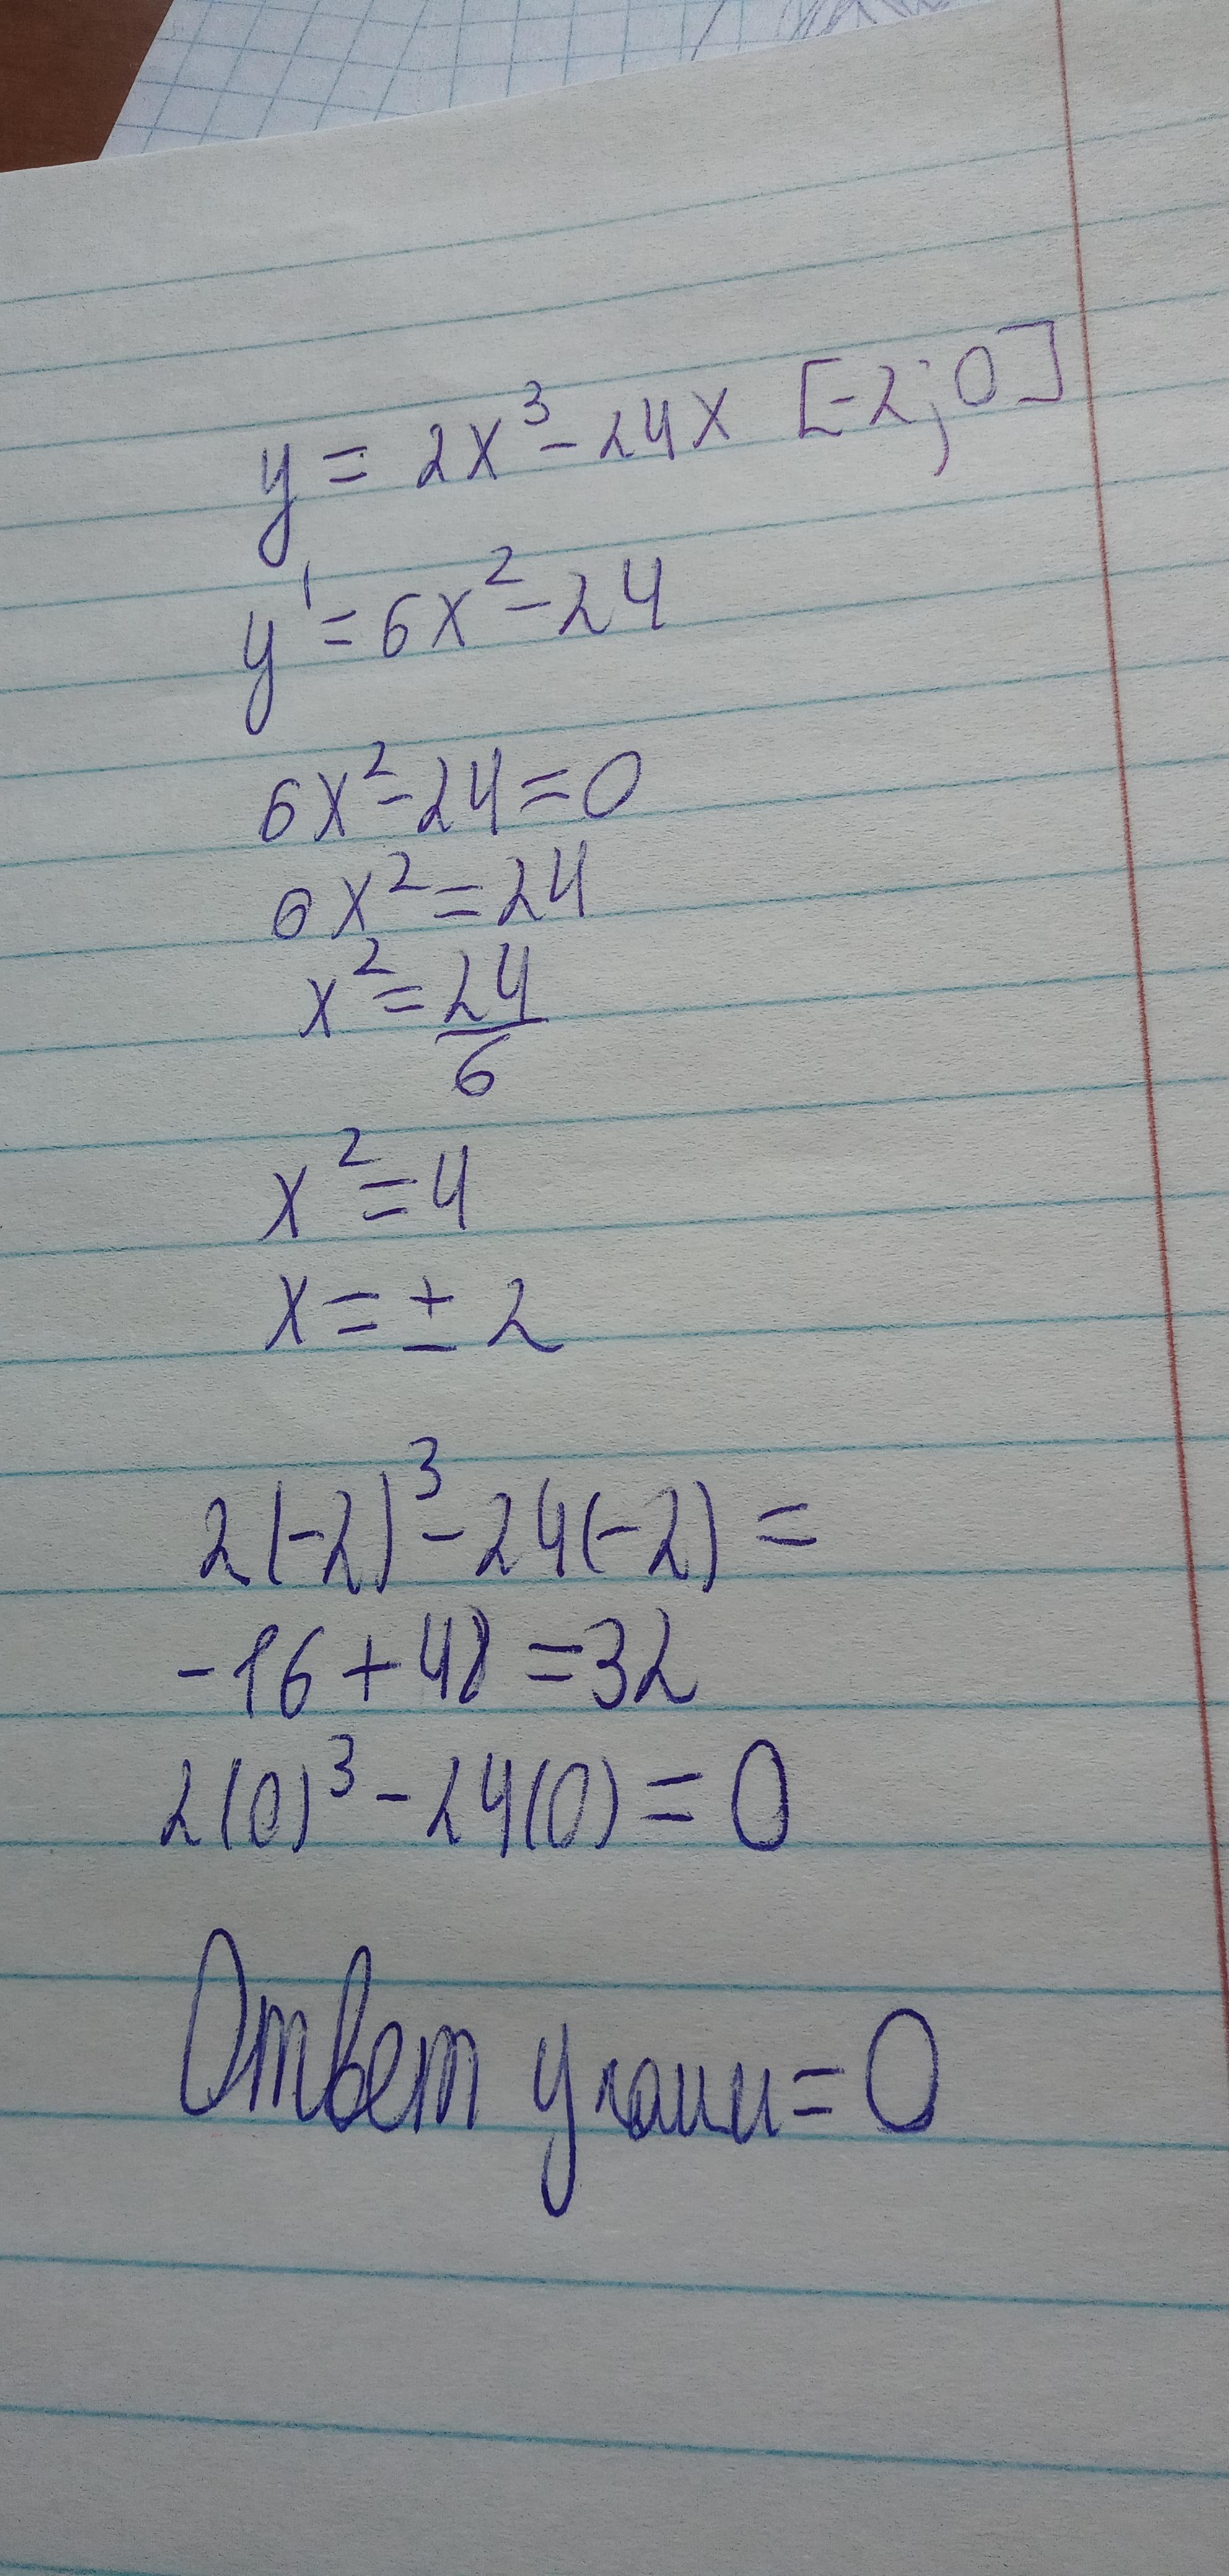 y = 2x³ - 24x [-2; 0]
y' = 6x² - 24
6x² - 24 = 0
6x² = 24
x² = 24/6
x² = 4
x = ± 2
2(-2)³ - 24(-2) =
-16 + 48 = 32
2(0)³ - 24(0) = 0
Ответ y = 0